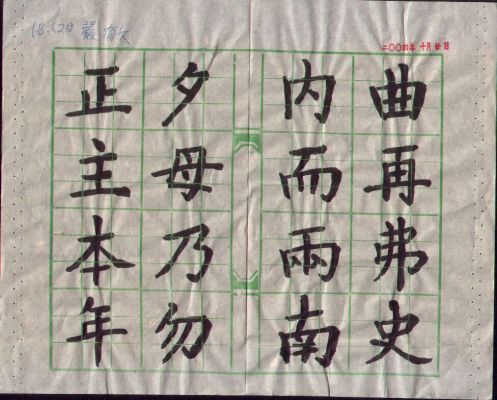 二〇〇四年 十月 廿日
曲再弗史
内而兩南
夕母乃勿
正主本年